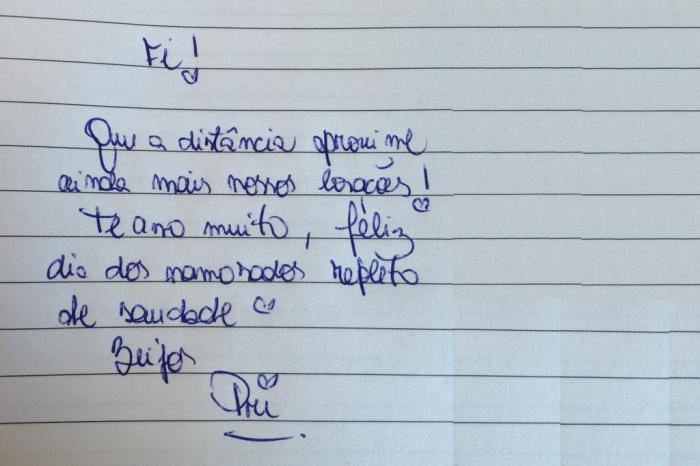 Fi!
Que a distância aproxime
ainda mais nossos corações!
Te amo muito, féliz
dia dos namorados repleto
de saudade
Beijos
Pri